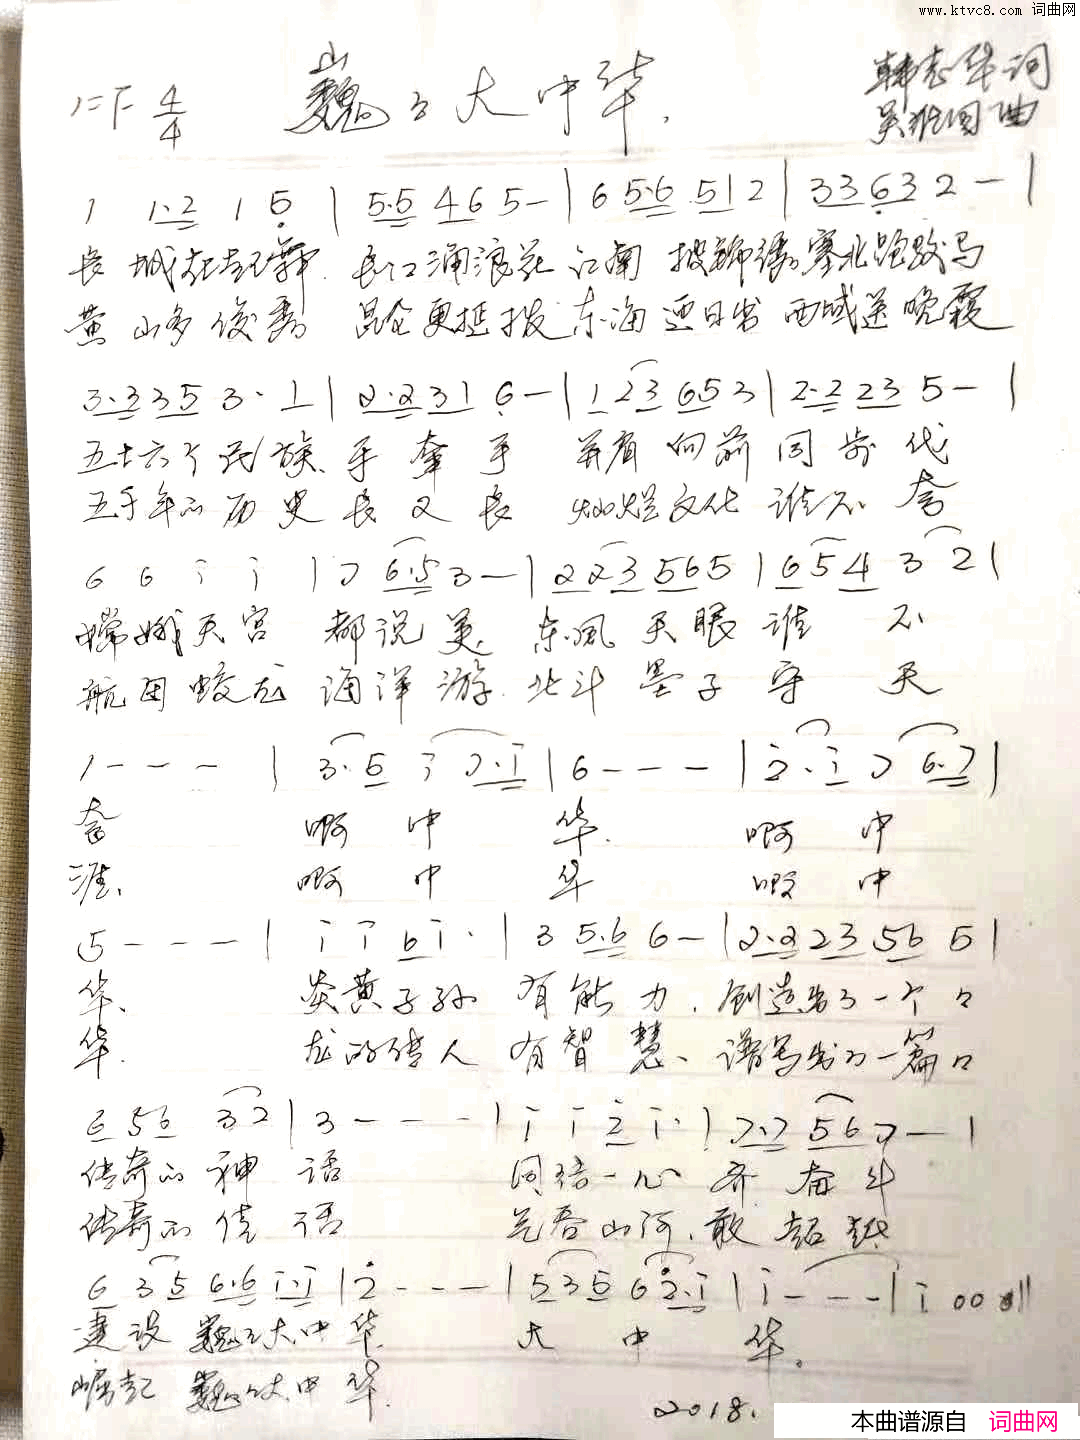 www.ktvc8.com 词曲网
1=F 4/4 巍々大中华
韩志华词
吴 国曲
1 1·2 1 5 | 5·5 46 5- | 6 5·6 51 2 | 3363 2 - |
长城在起舞 长江涌浪花 江南披锦绣 塞北跑骏马
黄山多俊秀 昆仑更挺拔 东海迎日出 西域送晚霞
3·335 3· 1 | 2·231 6 - | 1 23 653 | 2·2 23 5 - |
五十六个民族 手牵手 并肩向前同步伐
五千年的历史长又长 灿烂文化谁不夸
6 6 i i | 7 6·5 3 - | 223 565 | 654 3 2 |
嫦娥天宫都说美 东风天眼谁不
航母蛟龙海洋游 北斗墨子守天
1 - - - | 3·5 i 7·i | 6 - - - | 2·i 7 6·7 |
夸 啊中华 啊中
涯 啊中华 啊中
5 - - - | i i 6 i· | 3 5·6 6 - | 2·2 23 56 5 |
华 炎黄子孙有能力 创造出了一个々
华 龙的传人有智慧 谱写出了一篇々
6 56 32 | 3 - - - | i i 2 i· | 7·7 56 7 - |
传奇的神话 同语一心齐奋斗
传奇的佳话 气吞山河敢超越
6 35 6·6 i·i | 2 - - - | 535 6 2·i | i - - - | i 0 0 0 ||
建设巍々大中华 大中华
崛起巍々大中华
2018.
本曲谱源自 词曲网